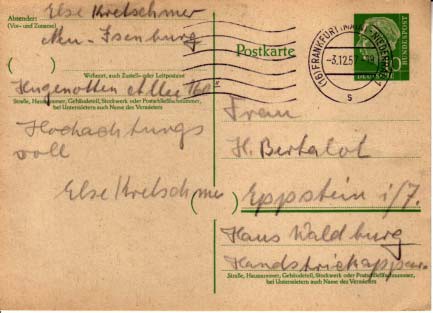 Absender: Else Kretschmer
(Vor- und Zuname)
Neu-Isenburg
( )
Wohnort, auch Zustell- oder Leitpostamt
Hugenotten Allee
Straße, Hausnummer, Gebäudeteil, Stockwerk oder Postschließfachnummer,
bei Untermietern auch Name des Vermieters
Hochachtungs
voll
Else Kretschmer
Postkarte
(16) FRANKFURT
-3.12.57
S
DEUTSCHE BUNDESPOST
10
Frau
H. Bertalot
( ) Eppstein i/T.
Haus Waldburg
Handstrickappar.
Straße, Hausnummer, Gebäudeteil, Stockwerk oder Postschließfachnummer,
bei Untermietern auch Name des Vermieters